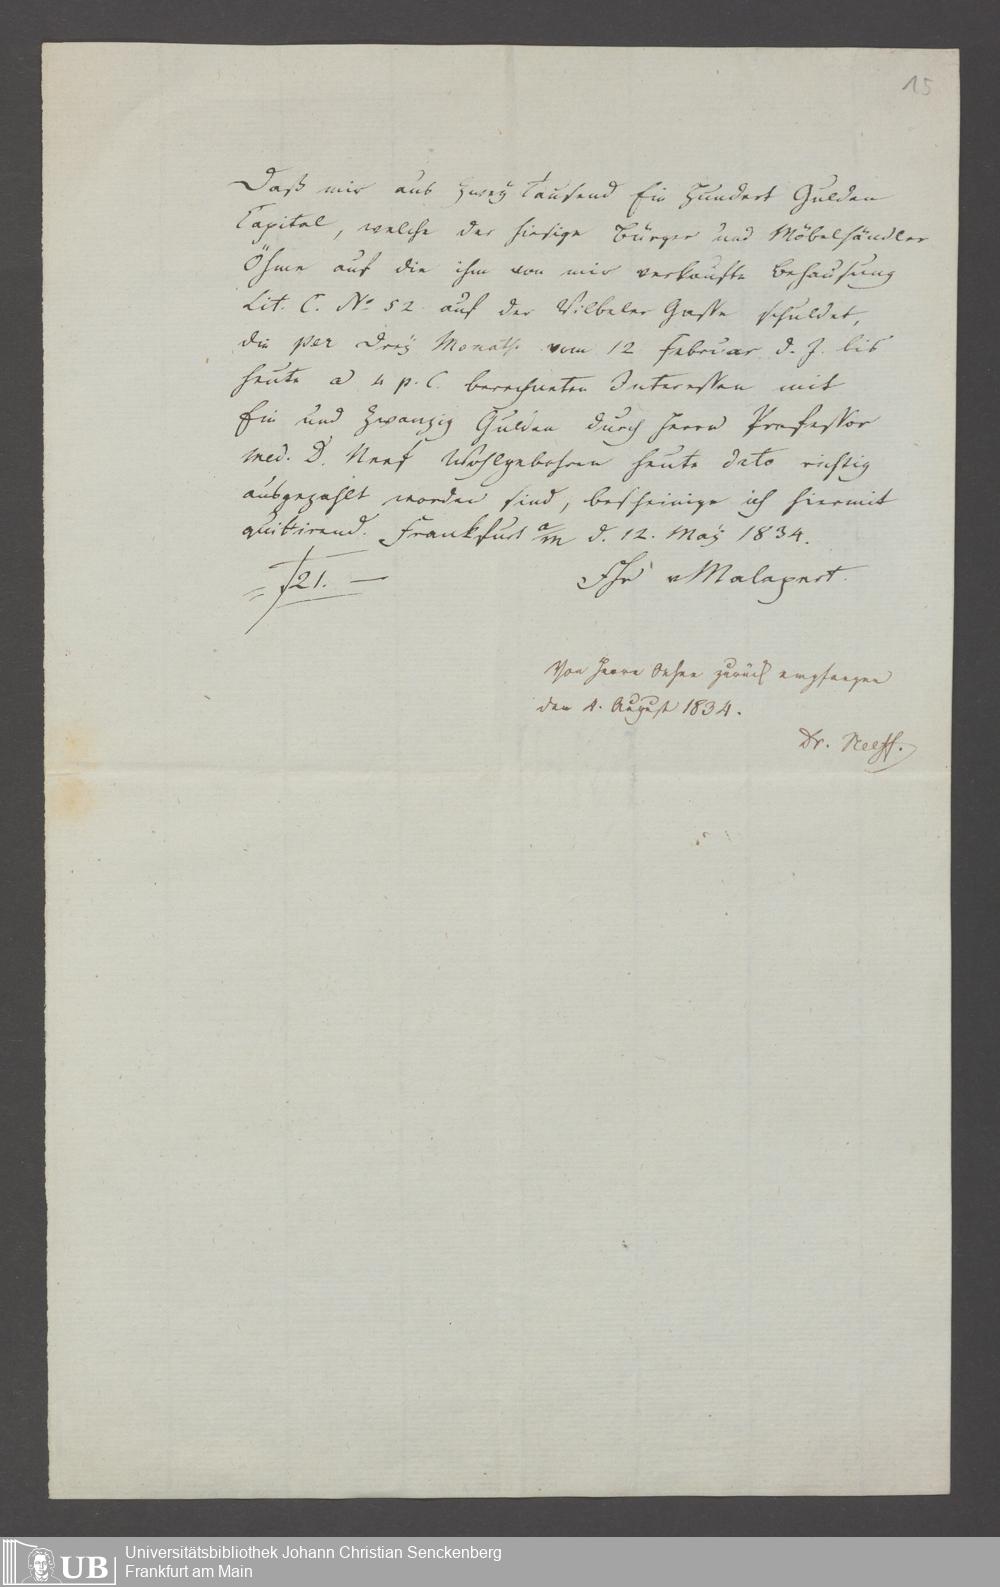 15
Daß mir aus Zwey Tausend Ein Hundert Gulden
Capital, welche der hiesige Bürger und Möbelhändler
Öhme auf die ihm von mir verkaufte Behausung
Lit. C. No 52 auf der Vilbeler Gasse schuldet,
die per Drey Monath vom 12 Februar d. J. bis
heute a 4 p. C. berechneten Interessen mit
Ein und Zwanzig Gulden durch Herrn Professor
Med. D. Neef Wohlgebohren heute dato richtig
ausgezahlt worden sind, bescheinige ich hiermit
quittirend. Frankfurt a/m d. 12. May 1834.
= f 21. —
Fhr v Malapert.
Von Herrn Oehme zurück empfangen
den 4. August 1834.
Dr. Neeff.
UB Universitätsbibliothek Johann Christian Senckenberg
Frankfurt am Main